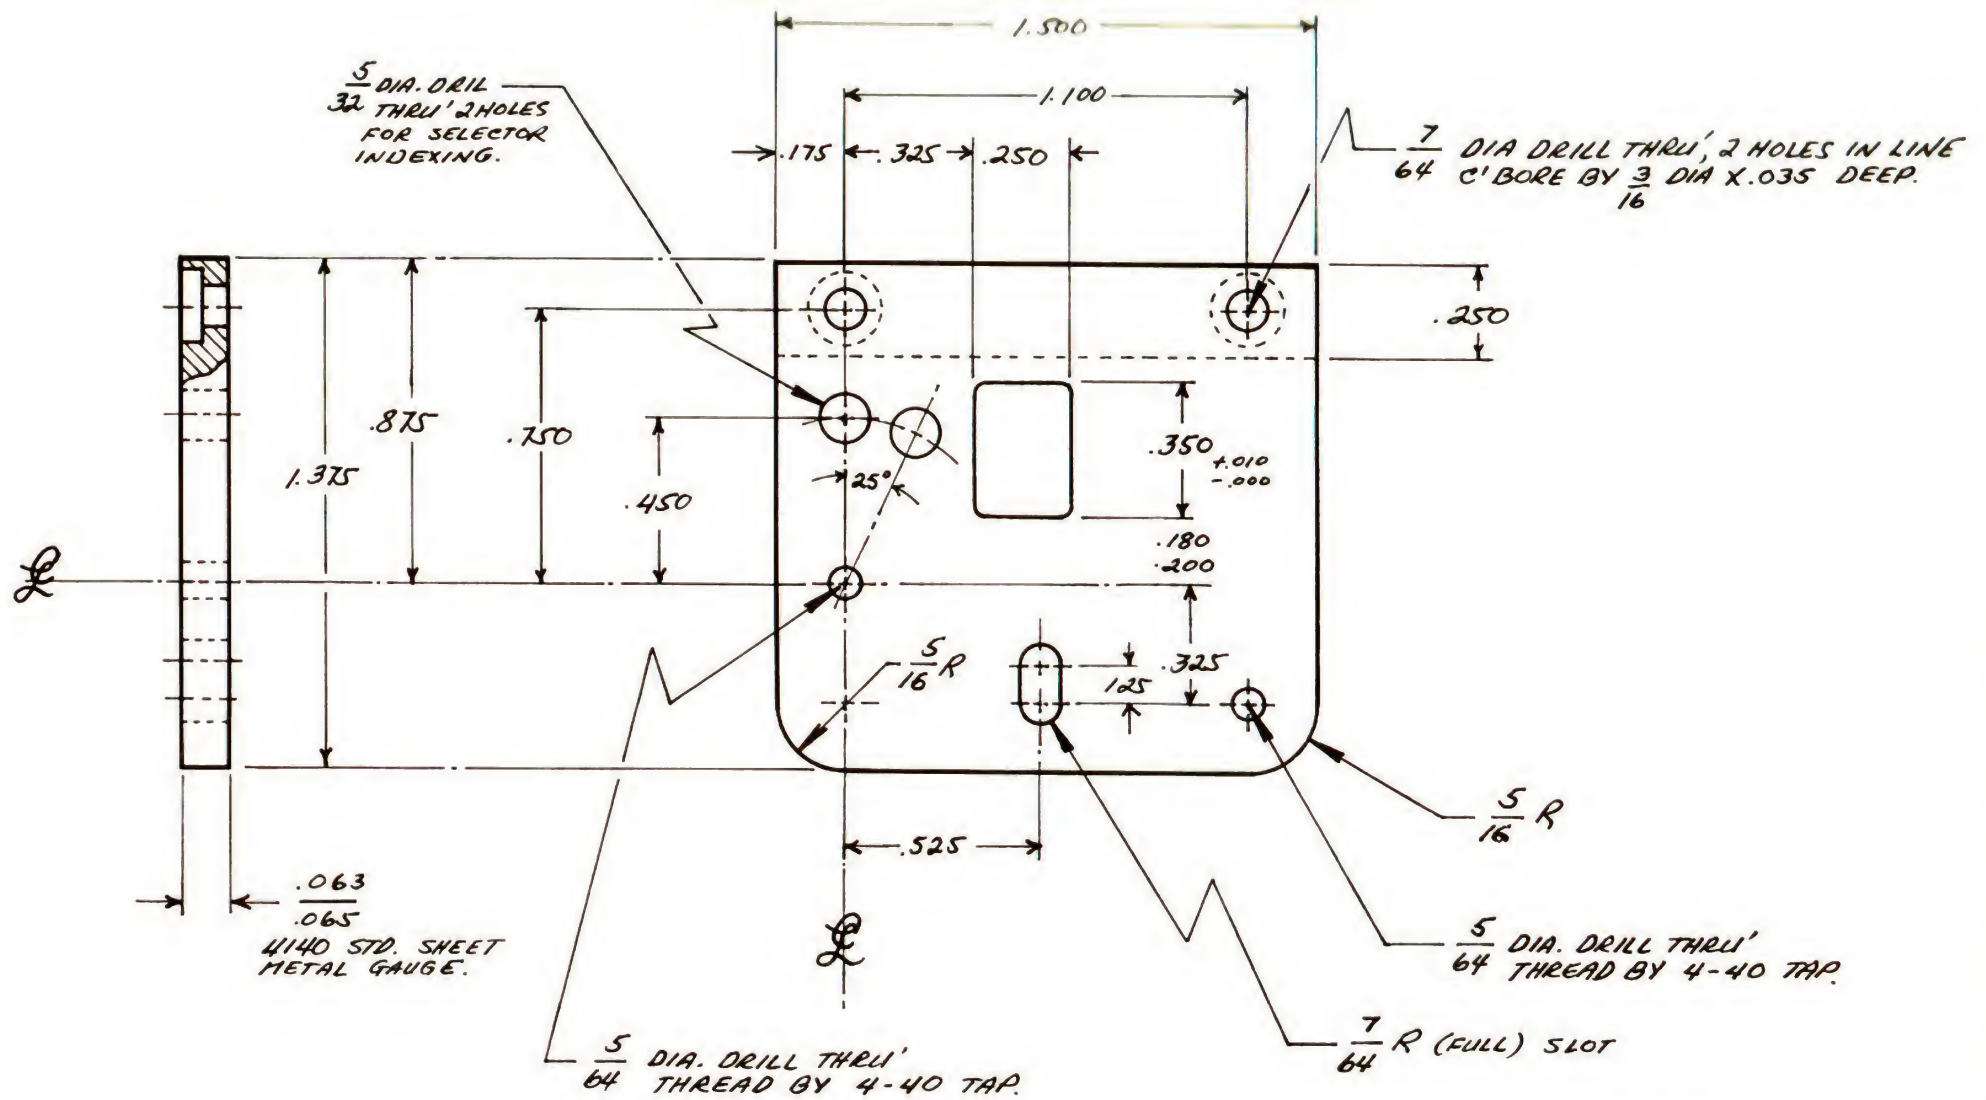 1.500
5/32 DIA. DRILL
THRU' 2 HOLES
FOR SELECTOR
INDEXING.
1.100
.175
.325
.250
7/64 DIA DRILL THRU', 2 HOLES IN LINE
C'BORE BY 3/16 DIA X .035 DEEP.
.250
.875
.750
.350 +.010 -.000
1.375
25°
.450
.180
.200
℄
5/16 R
.325
.125
5/16 R
.525
.063
.065
4140 STD. SHEET
METAL GAUGE.
℄
5/64 DIA. DRILL THRU'
THREAD BY 4-40 TAP.
7/64 R (FULL) SLOT
5/64 DIA. DRILL THRU'
THREAD BY 4-40 TAP.